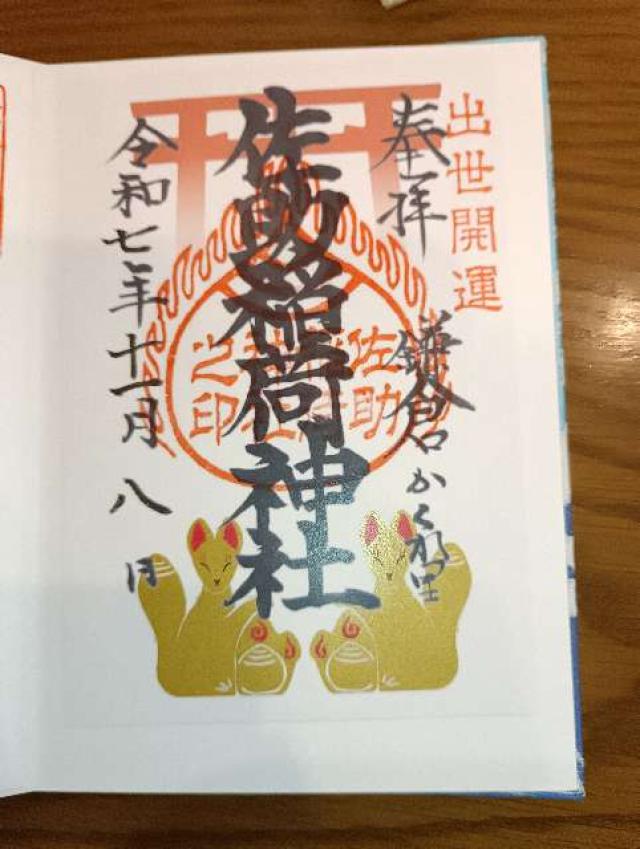 出世開運
奉拝
鎌倉かくれ里
佐助稲荷神社
佐助
之印
令和七年十一月八日